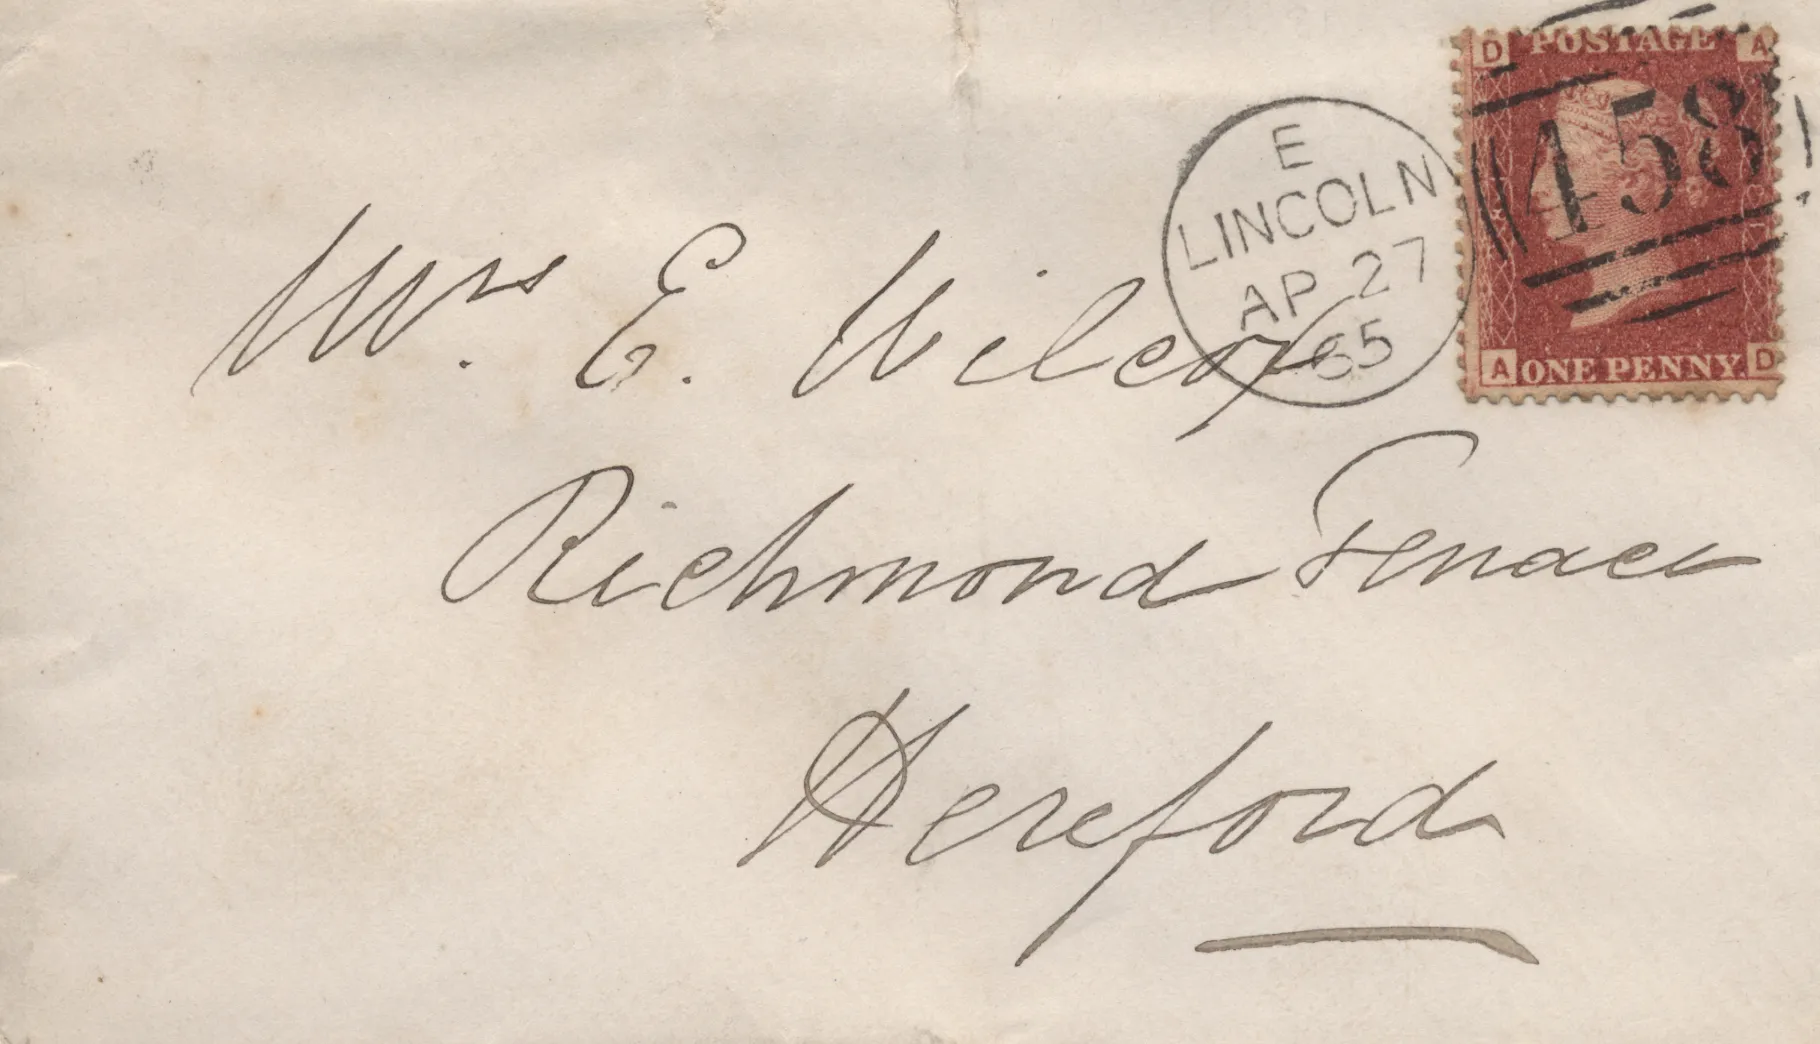 D POSTAGE A
458
A ONE PENNY D
E
LINCOLN
AP 27
65
Mrs. E. Wilcox
Richmond Terrace
Hereford